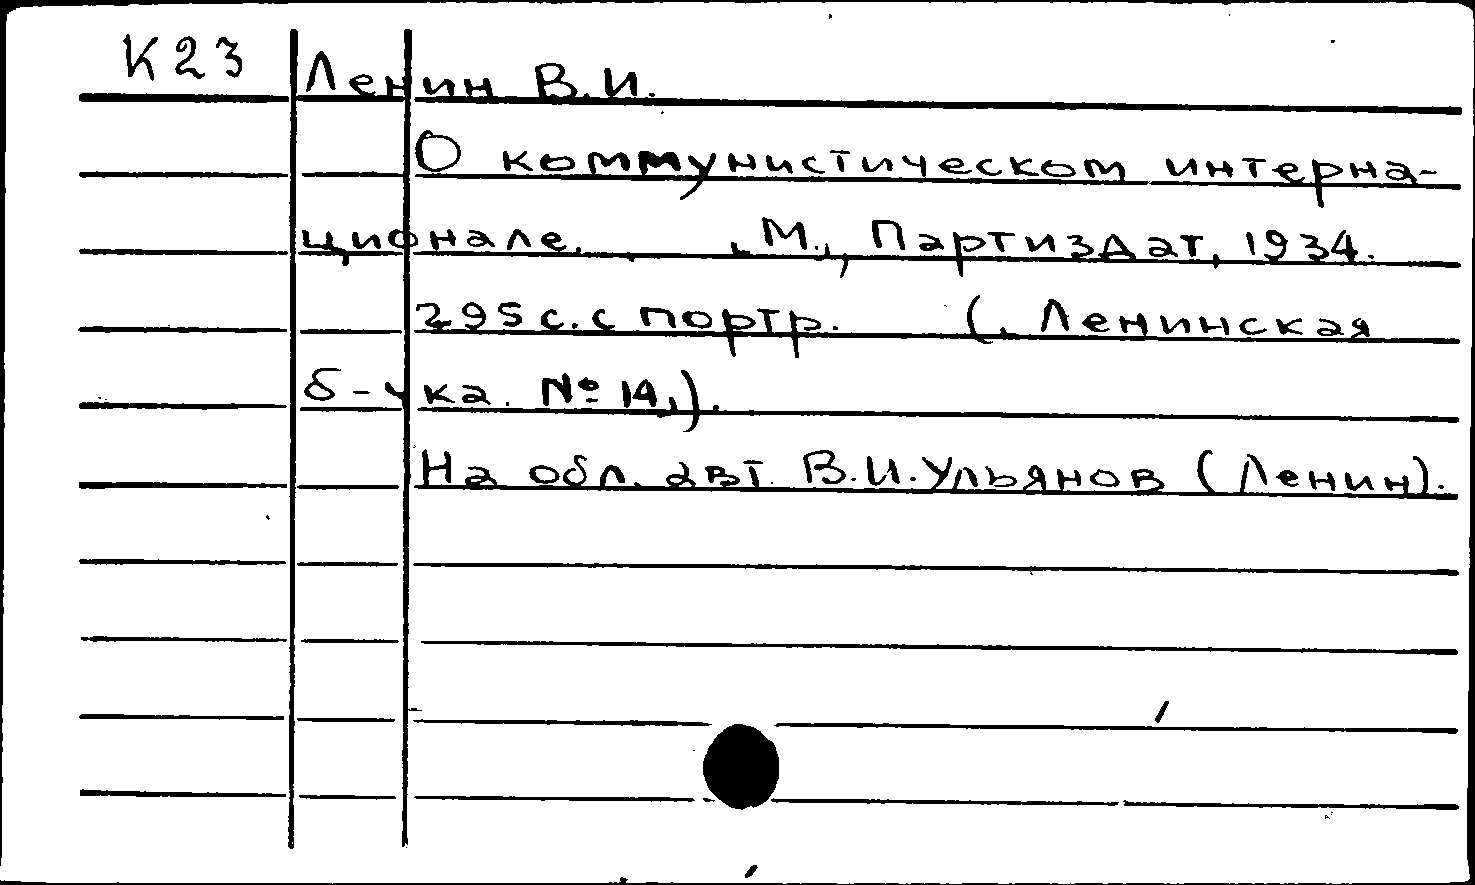 К23
Ленин В.И.
О коммунистическом интерна-
ционале. М., Партиздат, 1934.
295 с. с портр. (Ленинская
б-чка. № 14).
На обл. авт. В.И.Ульянов (Ленин).